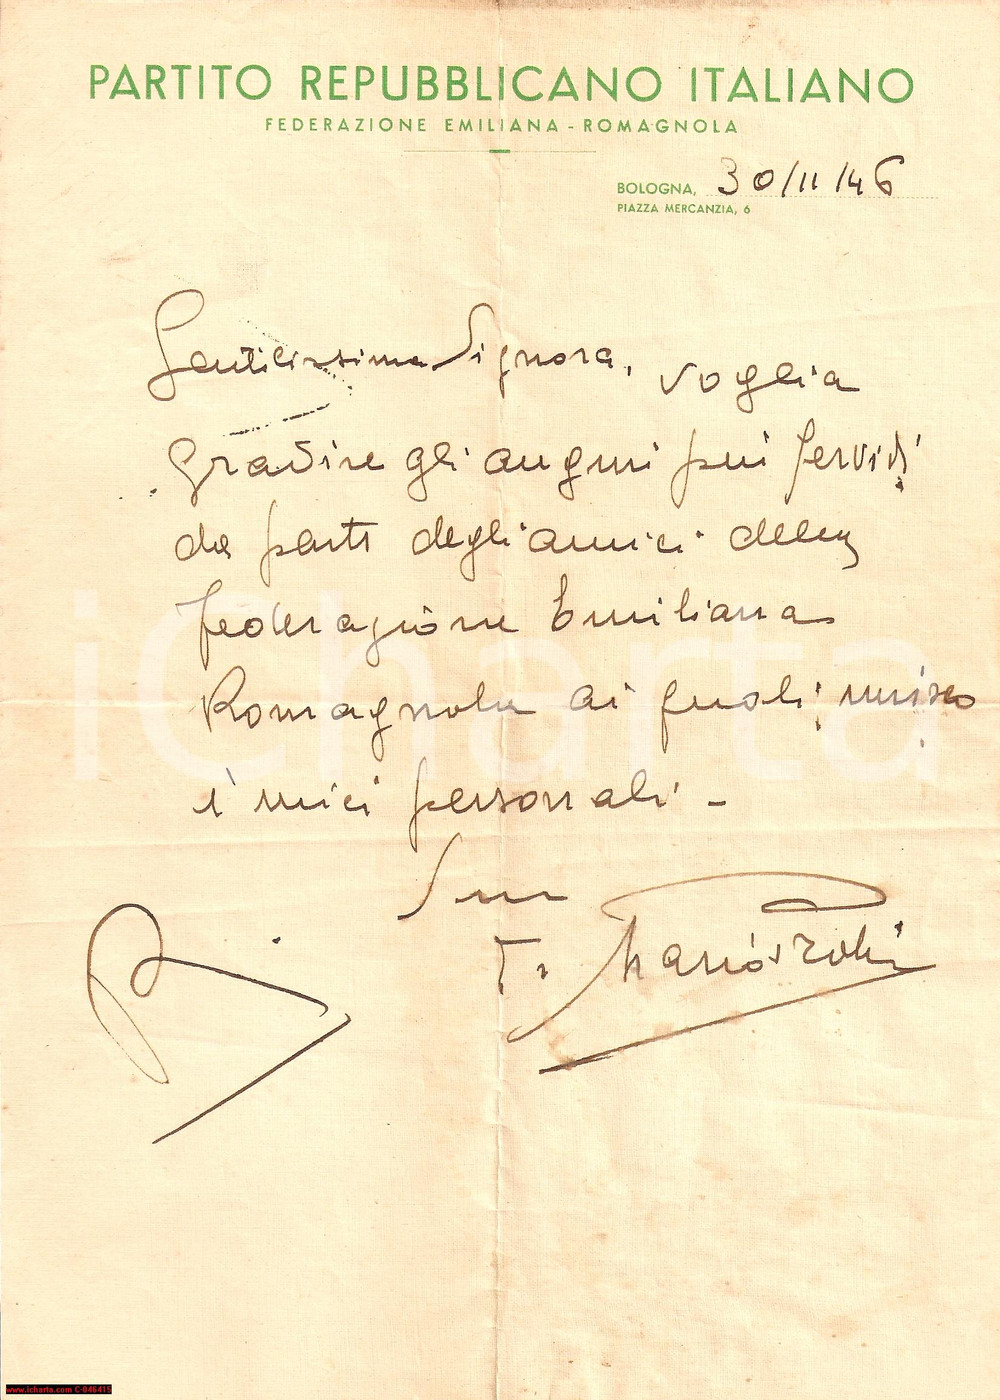 PARTITO REPUBBLICANO ITALIANO
FEDERAZIONE EMILIANA - ROMAGNOLA
BOLOGNA, 30/11/46
PIAZZA MERCANZIA, 6
Gentilissima Signora, voglia
gradire gli auguri più fervidi
da parte degli amici della
Federazione Emiliana
Romagnola ai quali unisco
i miei personali -
Suo
iCharta
www.icharta.com C-046415